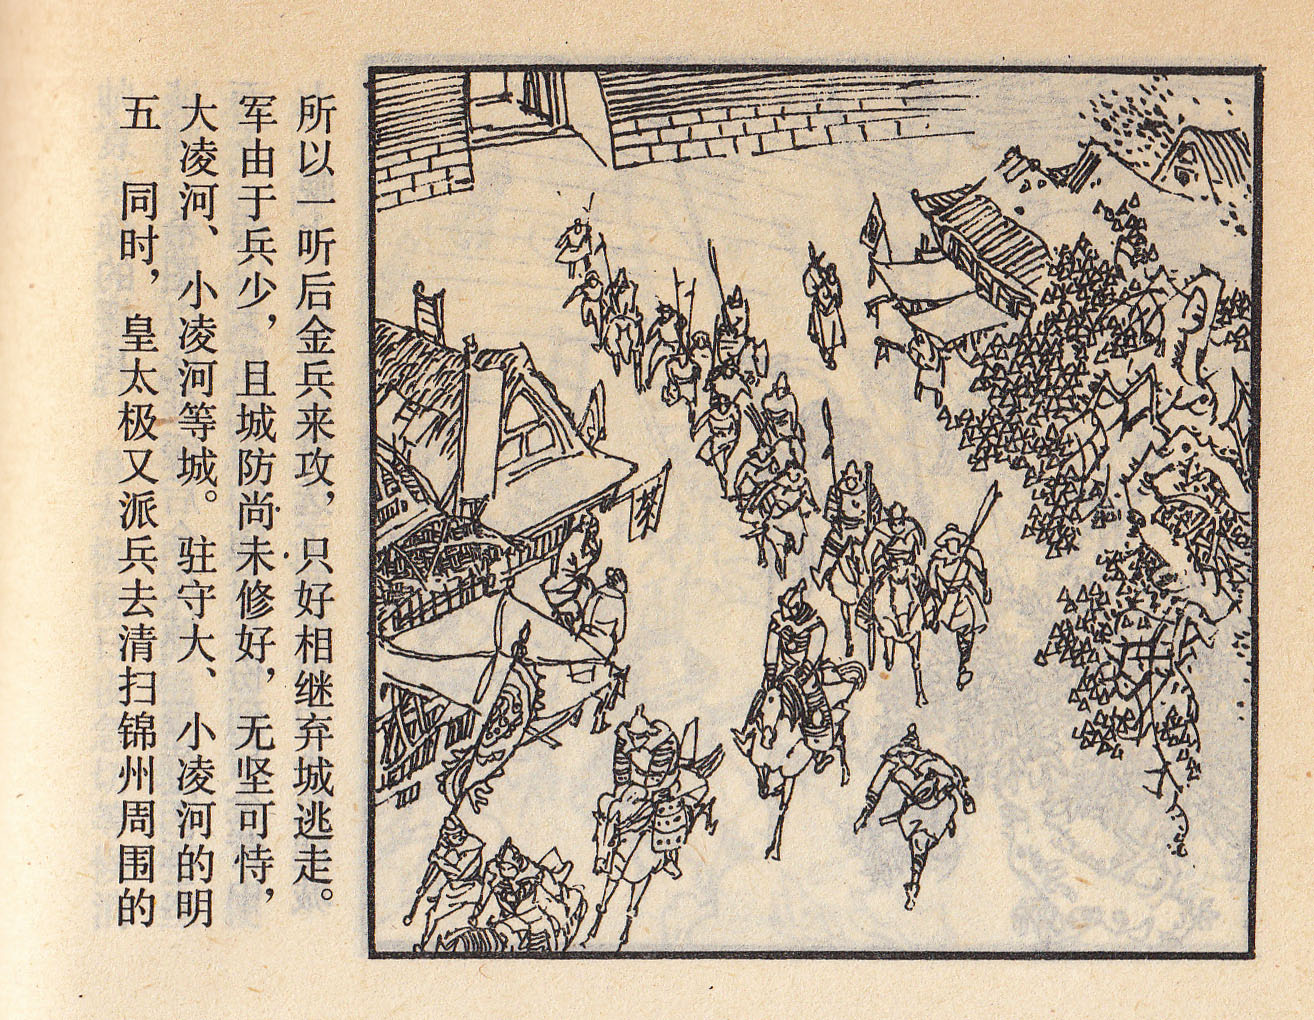 五 同时，皇太极又派兵去清扫锦州周围的
大凌河、小凌河等城。驻守大、小凌河的明
军由于兵少，且城防尚未修好，无坚可恃，
所以一听后金兵来攻，只好相继弃城逃走。